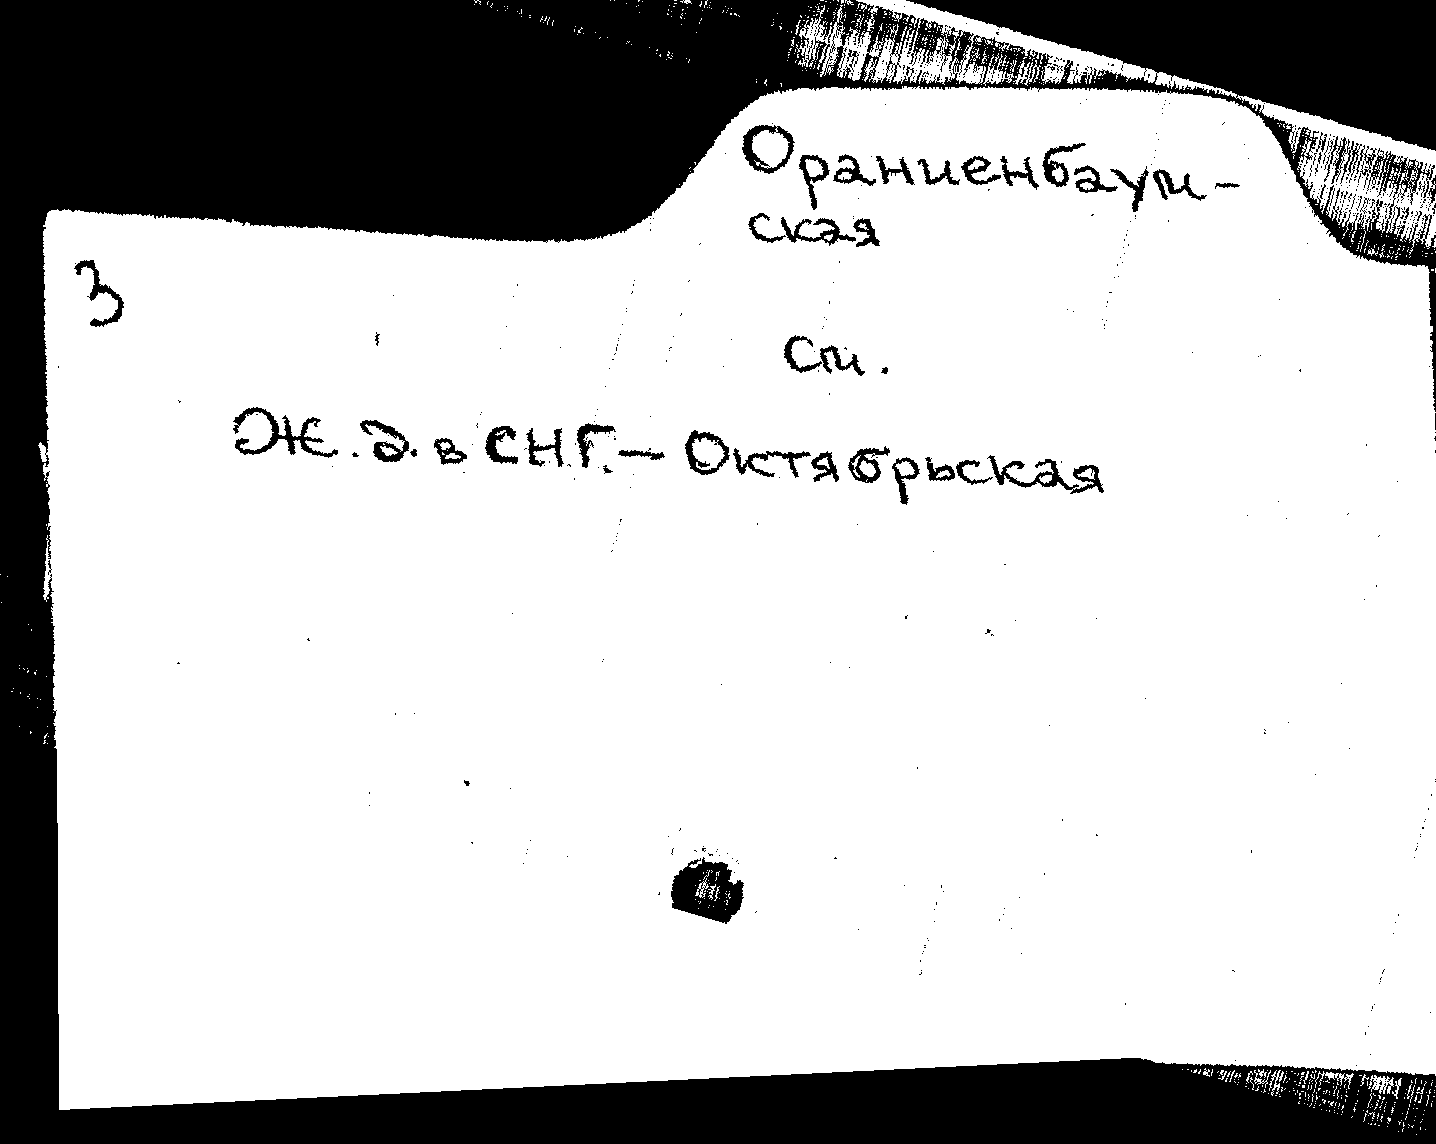 Ораниенбаум-
ская
3
См.
Ж.д. в СНГ. — Октябрьская